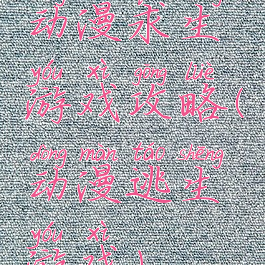 动漫求生
yóu xì gōng lüè
游戏攻略(
dòng màn táo shēng
动漫逃生
yóu xì
游戏)